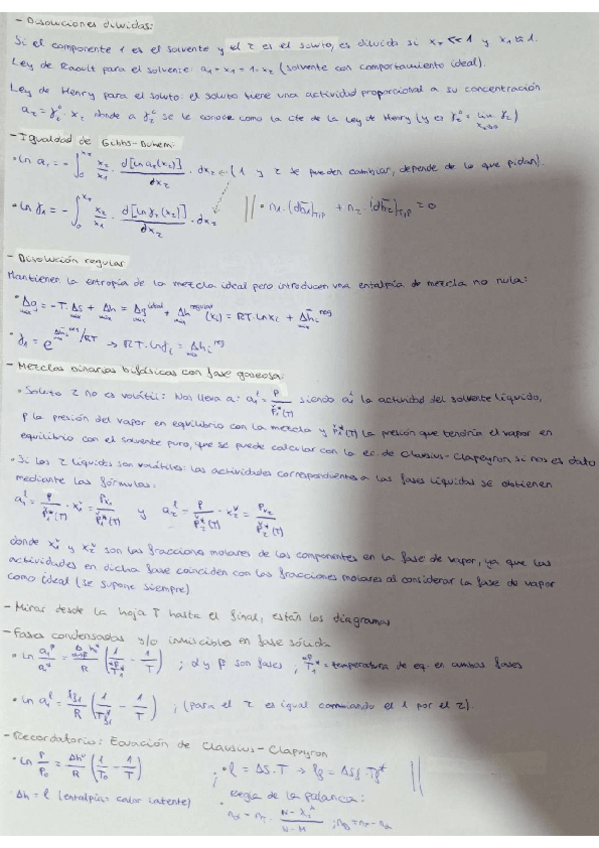 - Disoluciones diluidas:
Si el componente 1 es el solvente y el 2 es el soluto, es diluida si x₂ << 1 y x₁ ≈ 1.
Ley de Raoult para el solvente: a₁ = x₁ = 1 - x₂ (solvente con comportamiento ideal).
Ley de Henry para el soluto: el soluto tiene una actividad proporcional a su concentración
a₂ = γ₂° · x₂ donde a γ₂° se le conoce como la cte de la Ley de Henry (y es γ₂° = lim γ₂)
x₂→0
- Igualdad de Gibbs-Duhem:
• ln a₁ = - ∫₀^x₂ x₂/x₁ · d[ln a₂(x₂)]/dx₂ · dx₂ ← (1 y 2 se pueden cambiar, depende de lo que pidan).
• ln γ₁ = - ∫₀^x₂ x₂/x₁ · d[ln γ₂(x₂)]/dx₂ · dx₂ // • n₁ · (dh̄₁)T,P + n₂ · (dh̄₂)T,P = 0
- Disolución regular
Mantienen la entropía de la mezcla ideal pero introducen una entalpía de mezcla no nula:
• Δg = -T · Δs + Δh = Δg ideal + Δh regular (xᵢ) = RT ln xᵢ + Δh̄ᵢ reg
→ RT · ln γᵢ = Δh̄ᵢ reg
- Mezclas binarias bifásicas con fase gaseosa:
• Soluto 2 no es volátil: Nos lleva a: a₁ˡ = P/P₁*(T) siendo a₁ˡ la actividad del solvente líquido,
P la presión del vapor en equilibrio con la mezcla y P₁*(T) la presión que tendría el vapor en
equilibrio con el solvente puro, que se puede calcular con la ec. de Clausius-Clapeyron si no es dato
• Si los 2 líquidos son volátiles: las actividades correspondientes a las fases líquidas se obtienen
mediante las fórmulas:
a₁ˡ = P/P₁*(T) · x₁ᵛ = Pv₁/P₁*(T) y a₂ˡ = P/P₂*(T) · x₂ᵛ = Pv₂/P₂*(T)
donde x₁ᵛ y x₂ᵛ son las fracciones molares de los componentes en la fase de vapor, ya que las
actividades en dicha fase coinciden con las fracciones molares al considerar la fase de vapor
como ideal (se supone siempre)
- Mirar desde la hoja 7 hasta el final, están los diagramas
- Fases condensadas y/o inmiscibles en fase sólida
; α y β son fases ; = temperatura de eq. en ambas fases
; (para el 2 es igual cambiando el 1 por el 2).
- Recordatorio: Ecuación de Clausius-Clapeyron
• ln P/P₀ = Δhᵛ/R (1/T₀ - 1/T) ; • l = Δs · T → lf = Δsf · Tf* //
Δh = l (entalpía = calor latente) • Regla de la palanca: